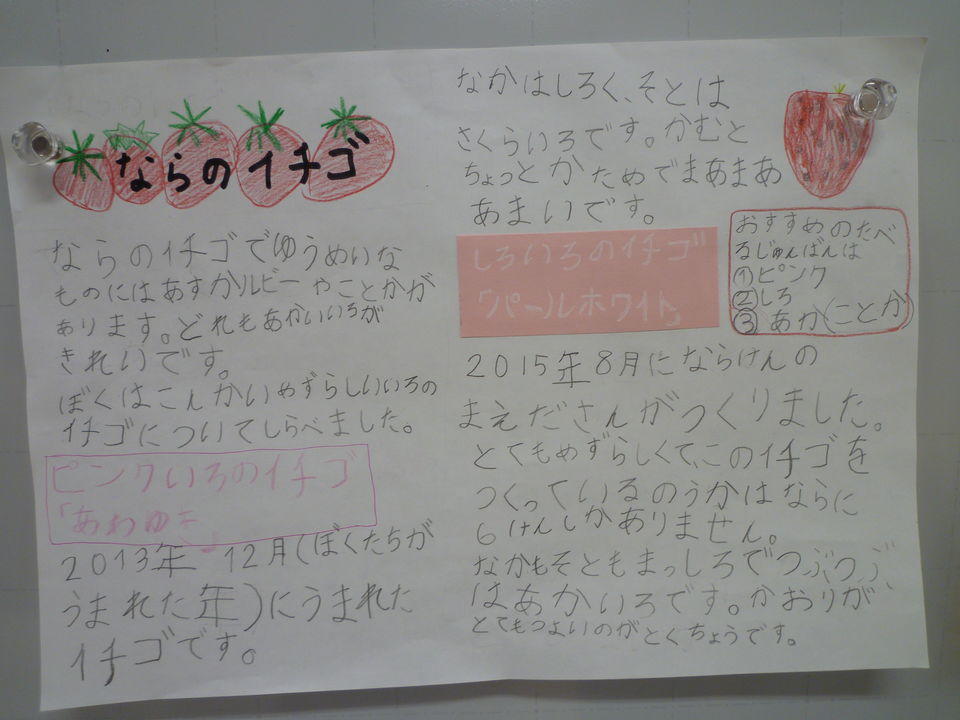 ならのイチゴ
ならのイチゴでゆうめいな
ものにはあすかルビーやことかが
あります。どれもあかいいろが
きれいです。
ぼくはこんかいめずらしいいろの
イチゴについてしらべました。
ピンクいろのイチゴ
「あわゆき」
2013年 12月(ぼくたちが
うまれた年)にうまれた
イチゴです。
なかはしろく、そとは
さくらいろです。かむと
ちょっとかためでまあまあ
あまいです。
しろいろのイチゴ
「パールホワイト」
2015年8月にならけんの
まえださんがつくりました。
とてもめずらしくて、このイチゴを
つくっているのうかはならに
6けんしかありません。
なかもそともまっしろでつぶつぶ
はあかいろです。かおりが
とてもつよいのがとくちょうです。
おすすめのたべ
るじゅんばんは
①ピンク
②しろ
③あか(ことか)